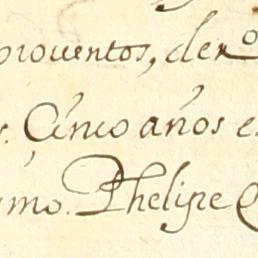 prouentos, de nro
s. Cinco años e
smo. Phelipe